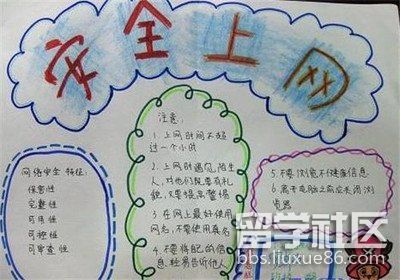 安全上网
网络安全 特征:
保密性
完整性
可用性
可控性
可审查性
注意:
1. 上网时间不超
过一个小时
2. 上网时遇见陌生
人,对他们既要有礼
貌,又要提高警惕
3. 在网上最好使用
网名,不要使用真名
4. 不要将自己的信
息,轻易告诉他人
5. 不要浏览不健康信息
6. 离开电脑之前应关闭浏
览器
留学社区
bbs.liuxue86.com